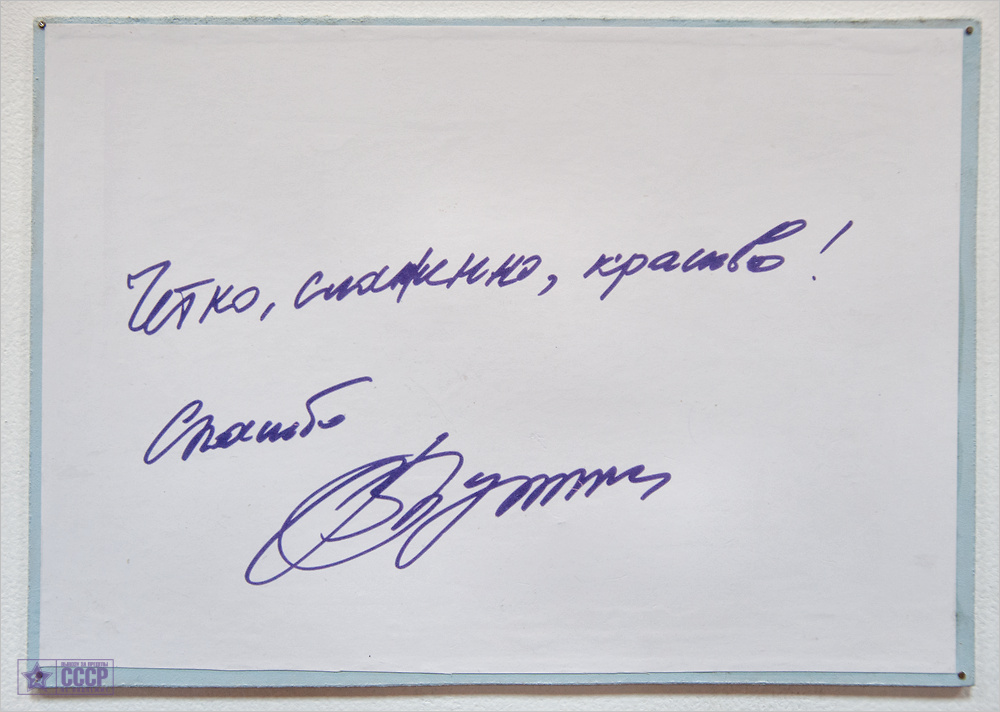 Четко, слаженно, красиво!
Спасибо
СССР